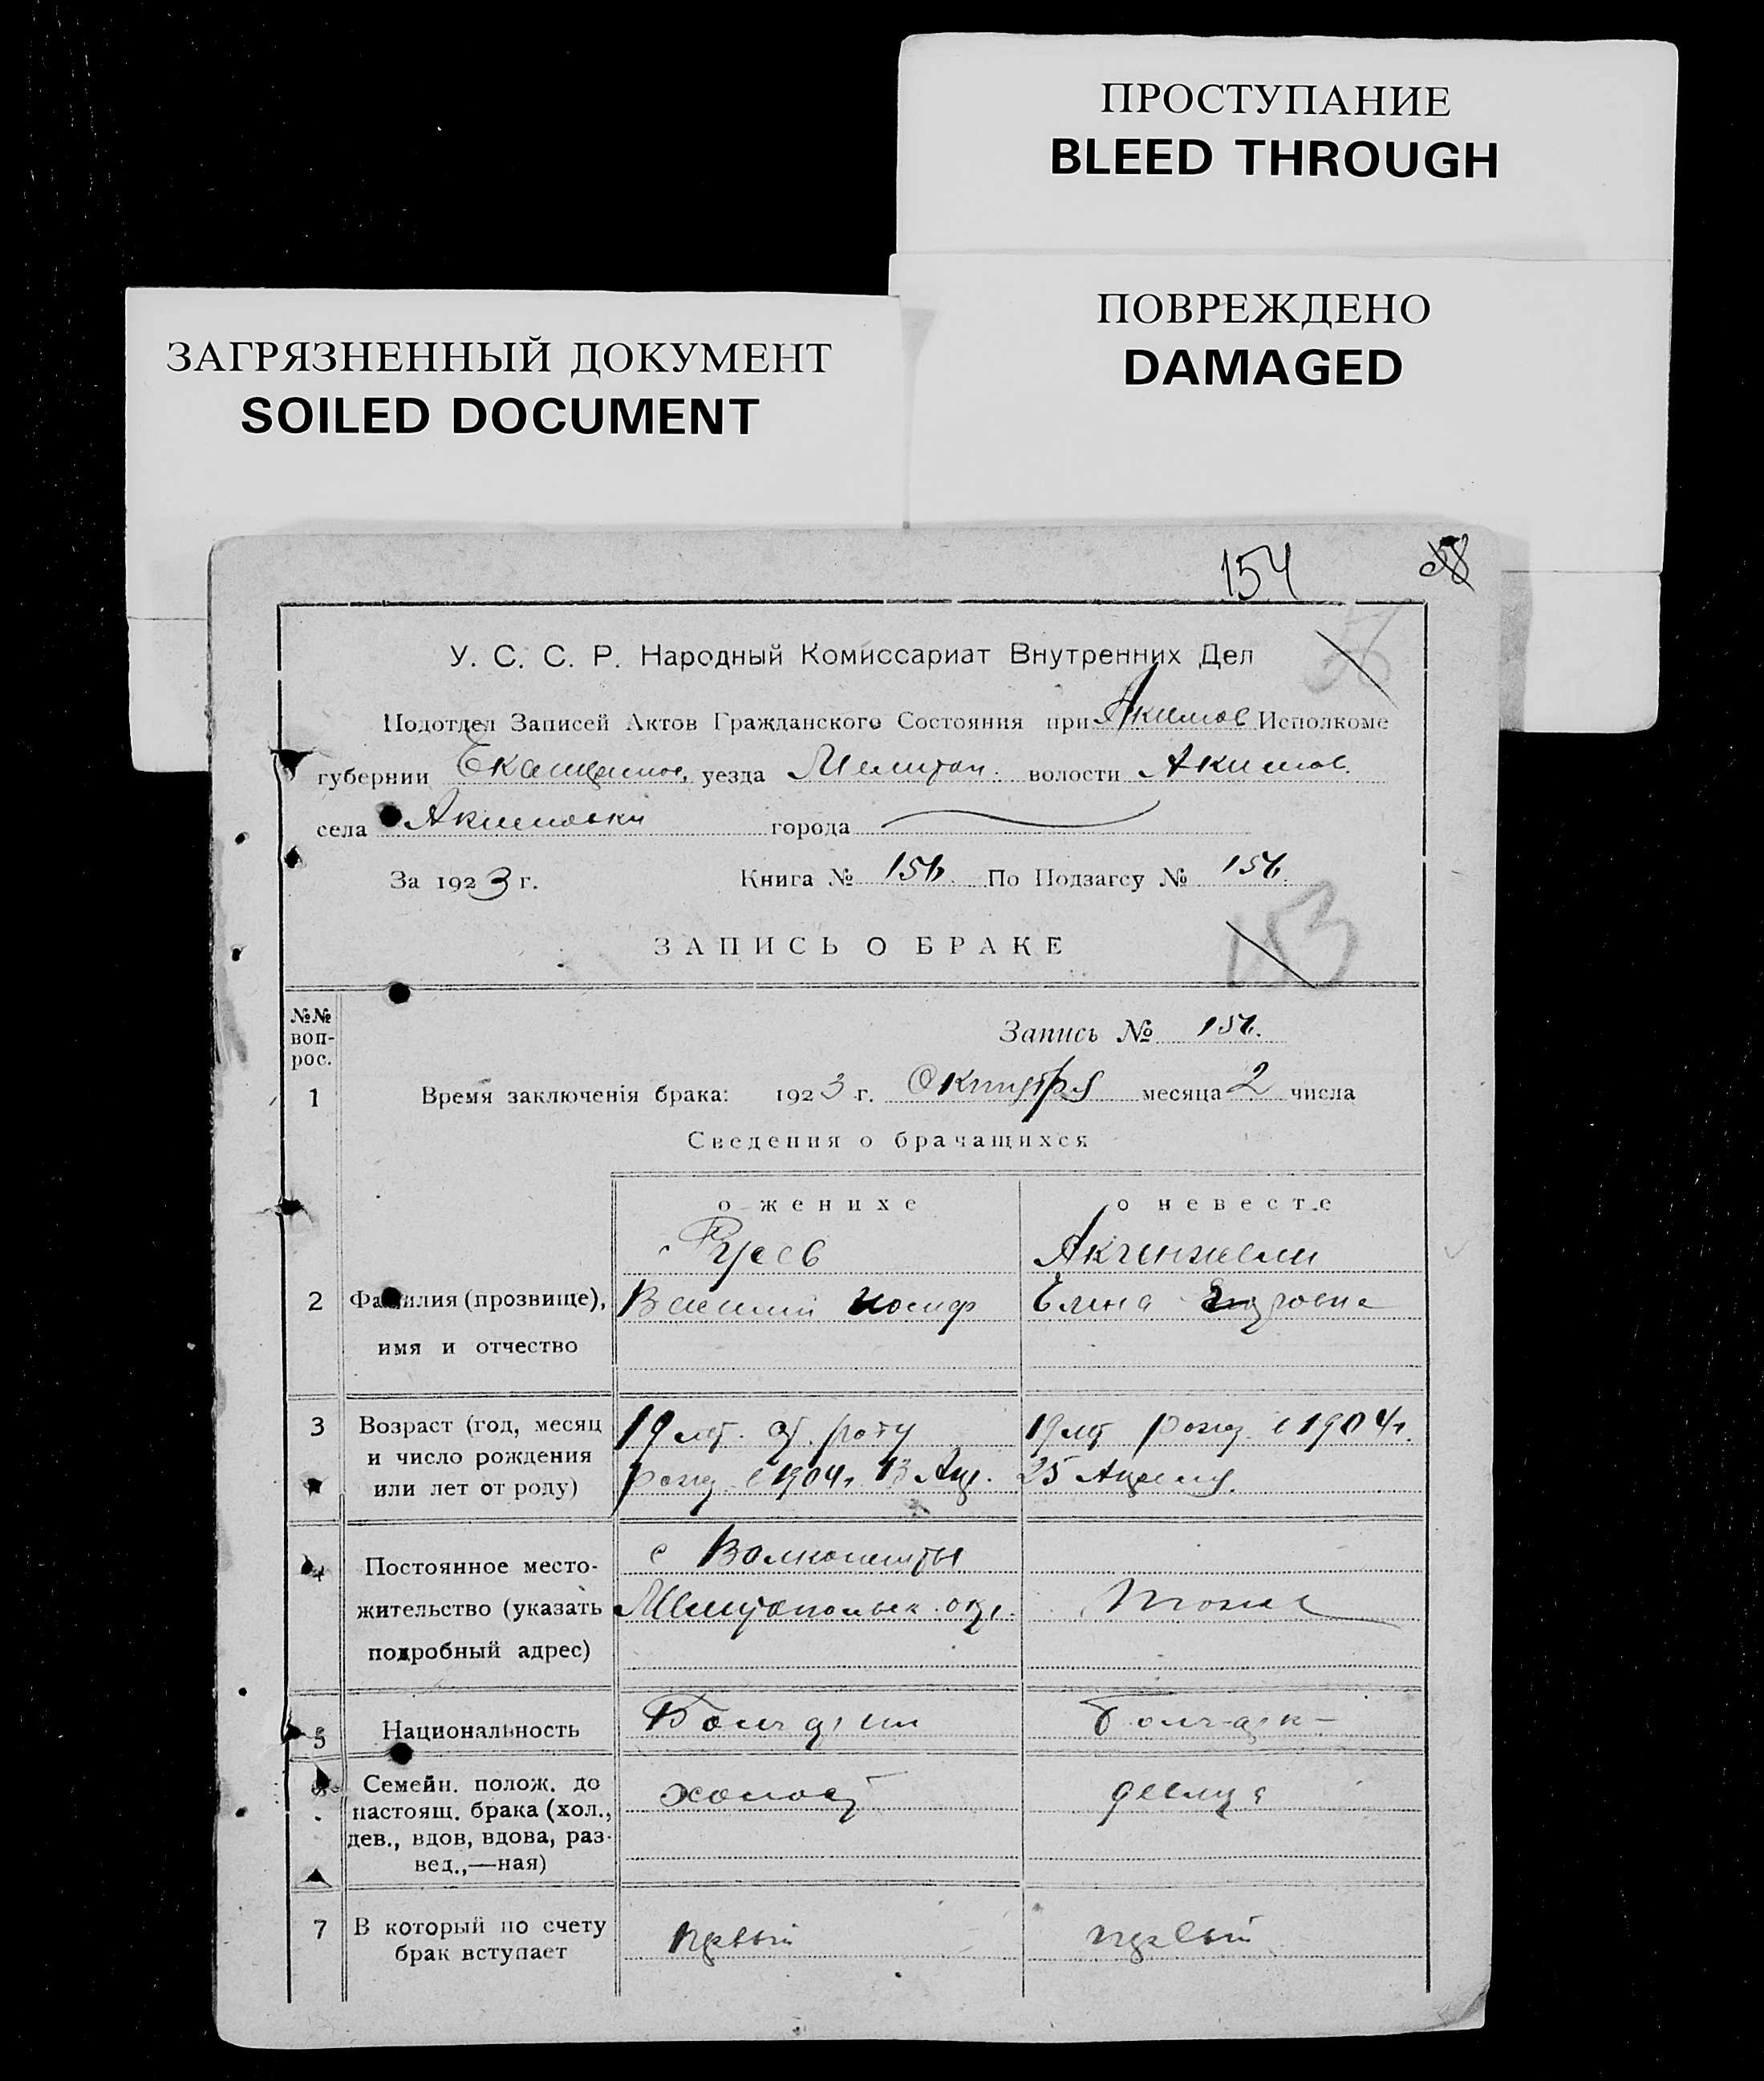 ПРОСТУПАНИЕ
BLEED THROUGH
ПОВРЕЖДЕНО
DAMAGED
ЗАГРЯЗНЕННЫЙ ДОКУМЕНТ
SOILED DOCUMENT
154 58
56
У. С. С. Р. Народный Комиссариат Внутренних Дел
Подотдел Записей Актов Гражданского Состояния при Акимов Исполкоме
губернии уезда Мелитоп. волости Акимов.
села Акимовки города
За 1923 г. Книга № По Подзагсу №
153
ЗАПИСЬ О БРАКЕ
№№ воп-рос.
Запись №
1 Время заключенія брака: 1923 г. Октября месяца 2 числа
Сведения о брачащихся
о женихе о невесте
Русев
2 Фамилия (прозвище), Василий Иосиф Елена
имя и отчество
3 Возраст (год, месяц 19 лет от роду 19 лет рожд. в 1904 г.
и число рождения
или лет от роду) рожд. в 1904 г. 13 Апр. 25 Апреля.
4 Постоянное место- с
жительство (указать Мелитопольск. тоже
подробный адрес)
5 Национальность Болгарин Болгарк
Семейн. полож. до холост девица
настоящ. брака (хол.,
дев., вдов, вдова, раз-
вед.,—ная)
7 В который по счету первый первый
брак вступает